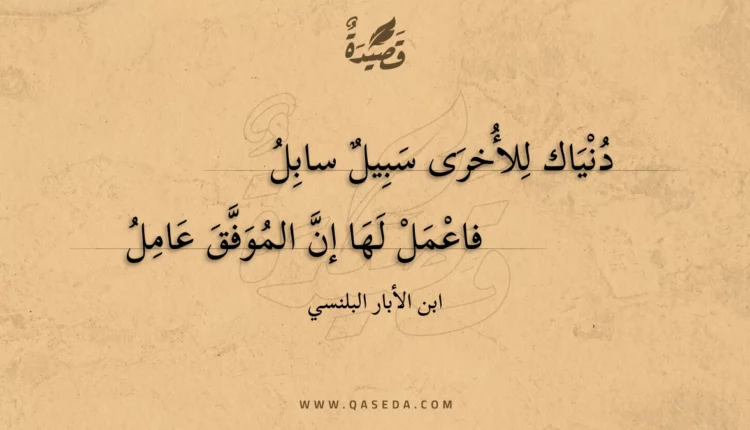 قَصِيْدَةٌ
دُنْيَاك لِلأُخرَى سَبِيلٌ سابِلُ
فاعْمَلْ لَهَا إنَّ المُوَفَّقَ عَامِلُ
ابن الأبار البلنسي
WWW.QASEDA.COM